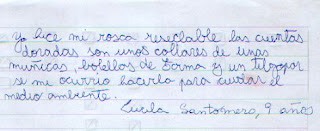 yo hice mi rosca reseclable las cuentas
doradas son unos collares de unas
muñicas, botellas de Forma y un telgopor
se me ocurrio hacerlo para cuidar el
medio ambiente.
Lucila Santomero, 9 años